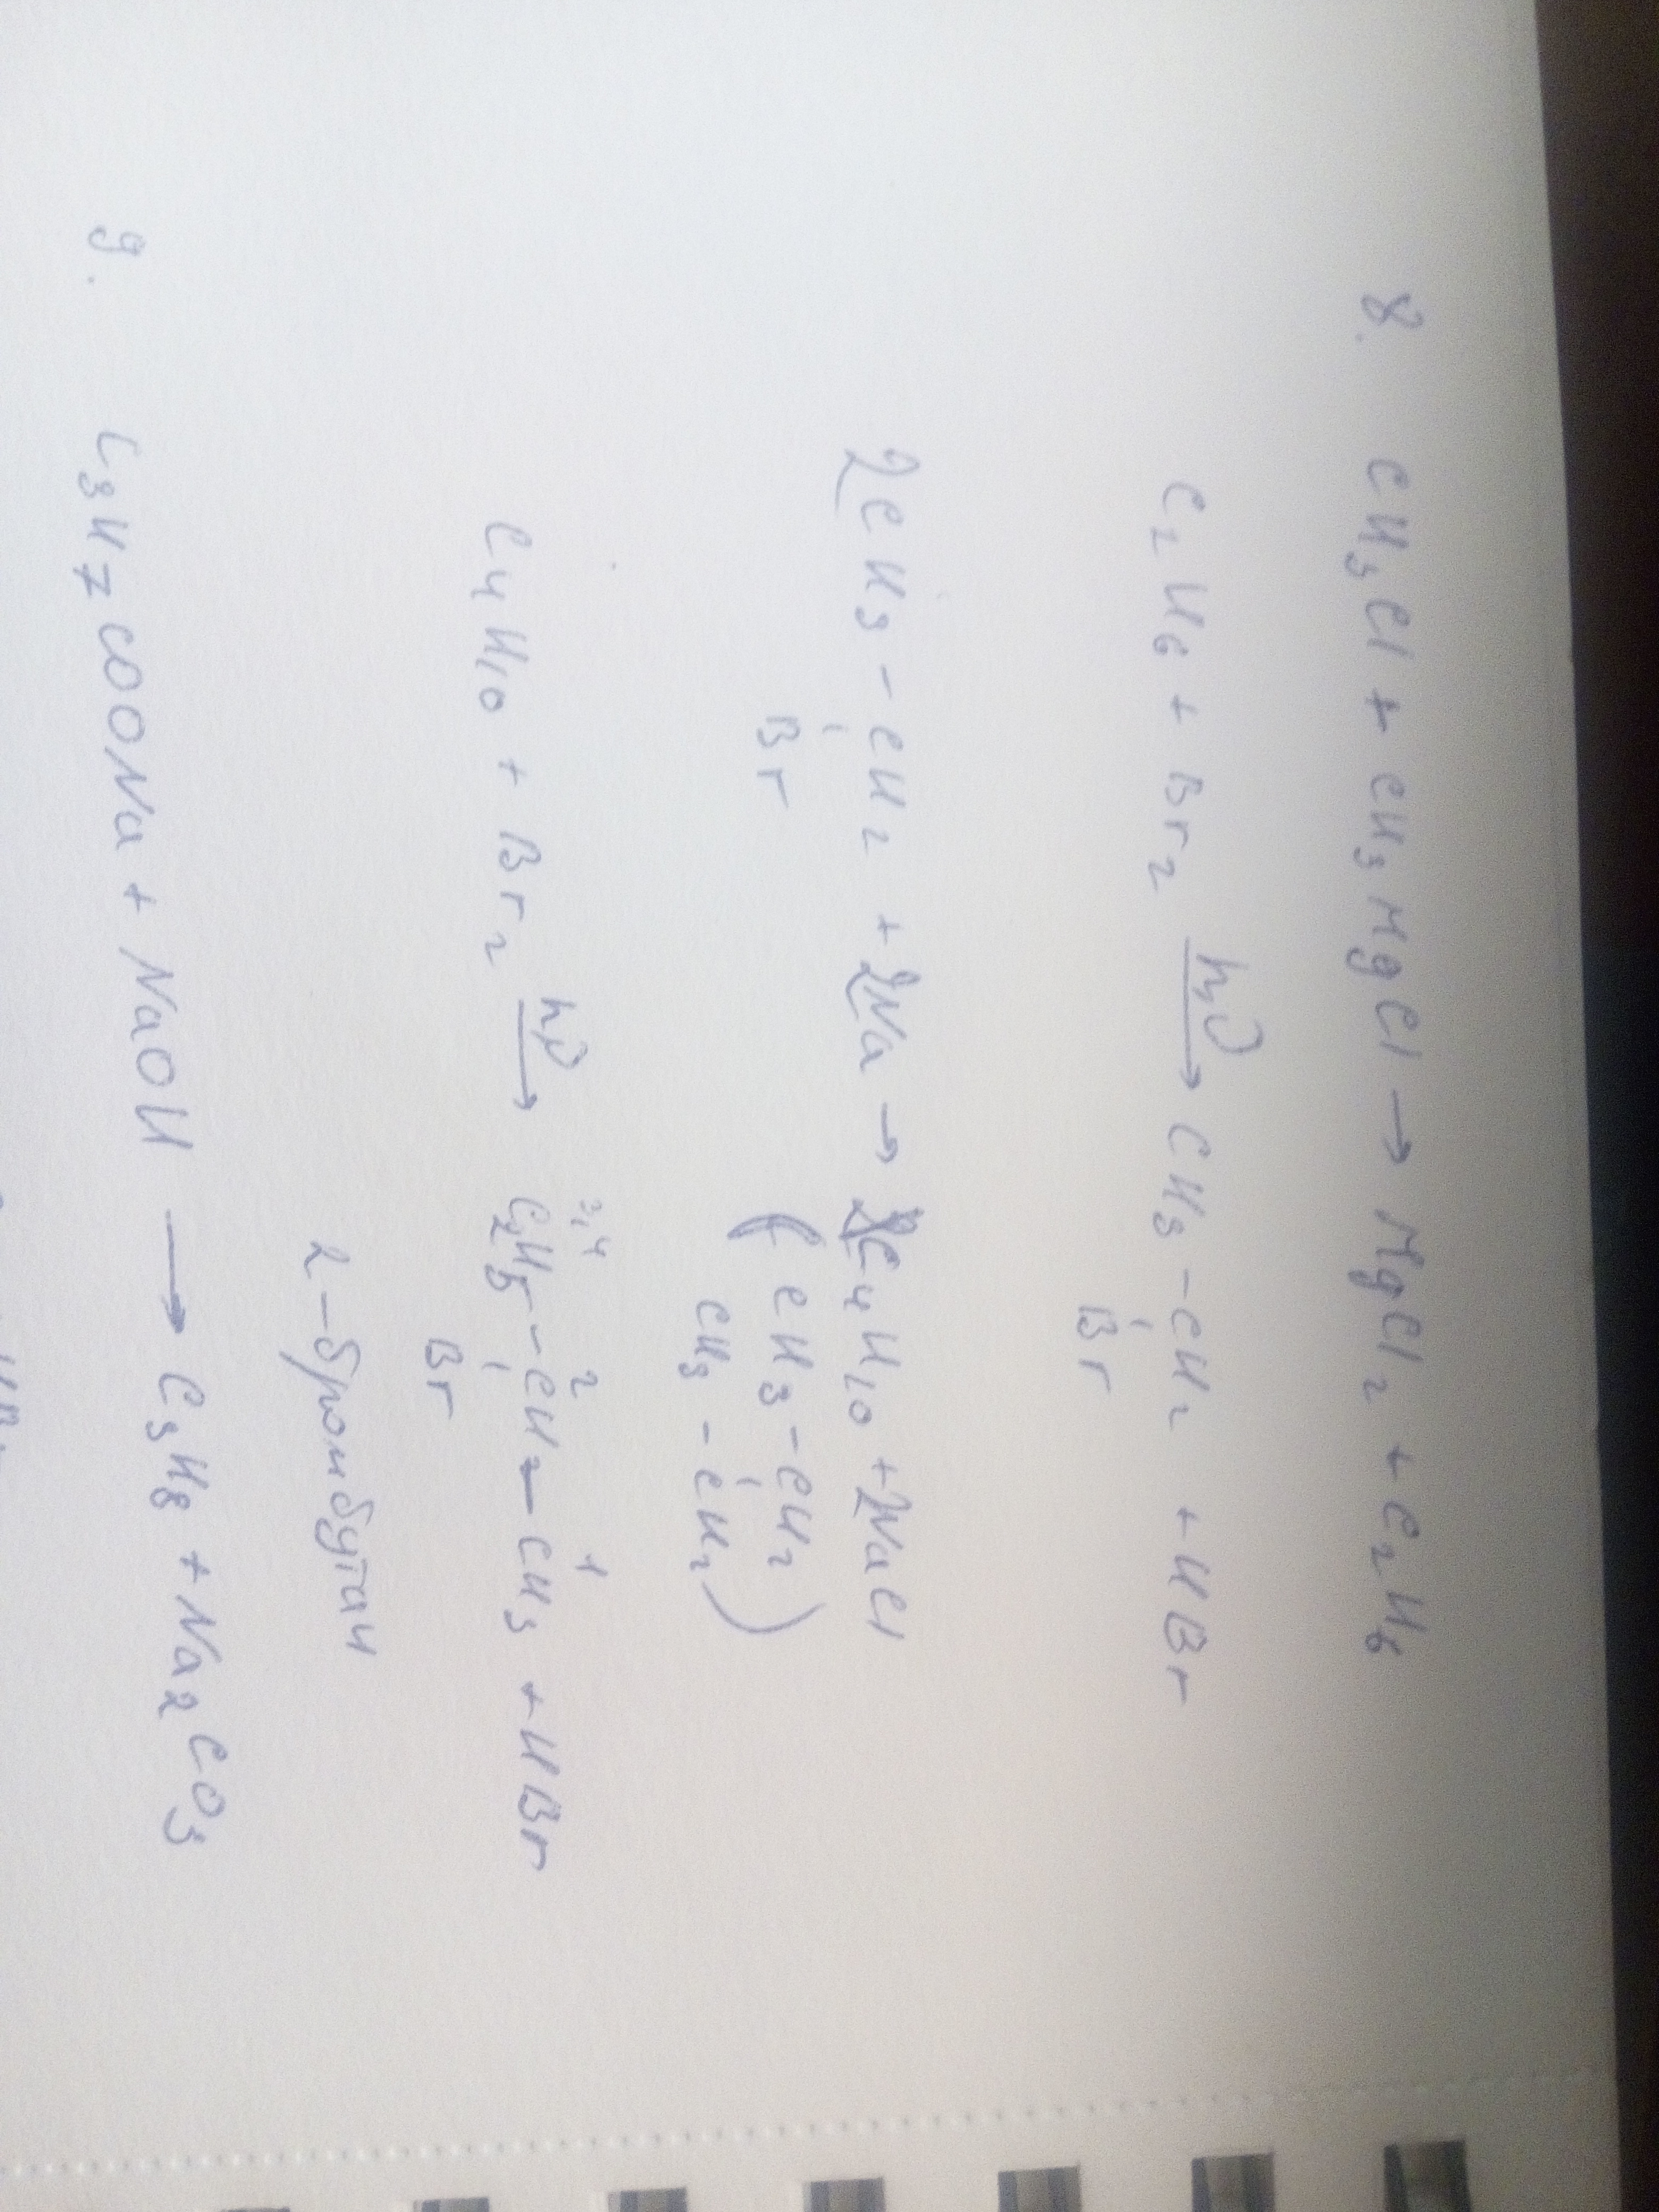 8. CH3Cl + CH3MgCl → MgCl2 + C2H6
C2H6 + Br2 hν→ CH3 – CH2 + HBr
Br
2CH3 – CH2 + 2Na → C4H10 + 2NaCl
Br
( CH3 – CH2
CH3 – CH2 )
3,4 2 1
C4H10 + Br2 hν→ C2H5 – CH – CH3 + HBr
Br
2 – бромбутан
9. C3H7COONa + NaOH → C3H8 + Na2CO3